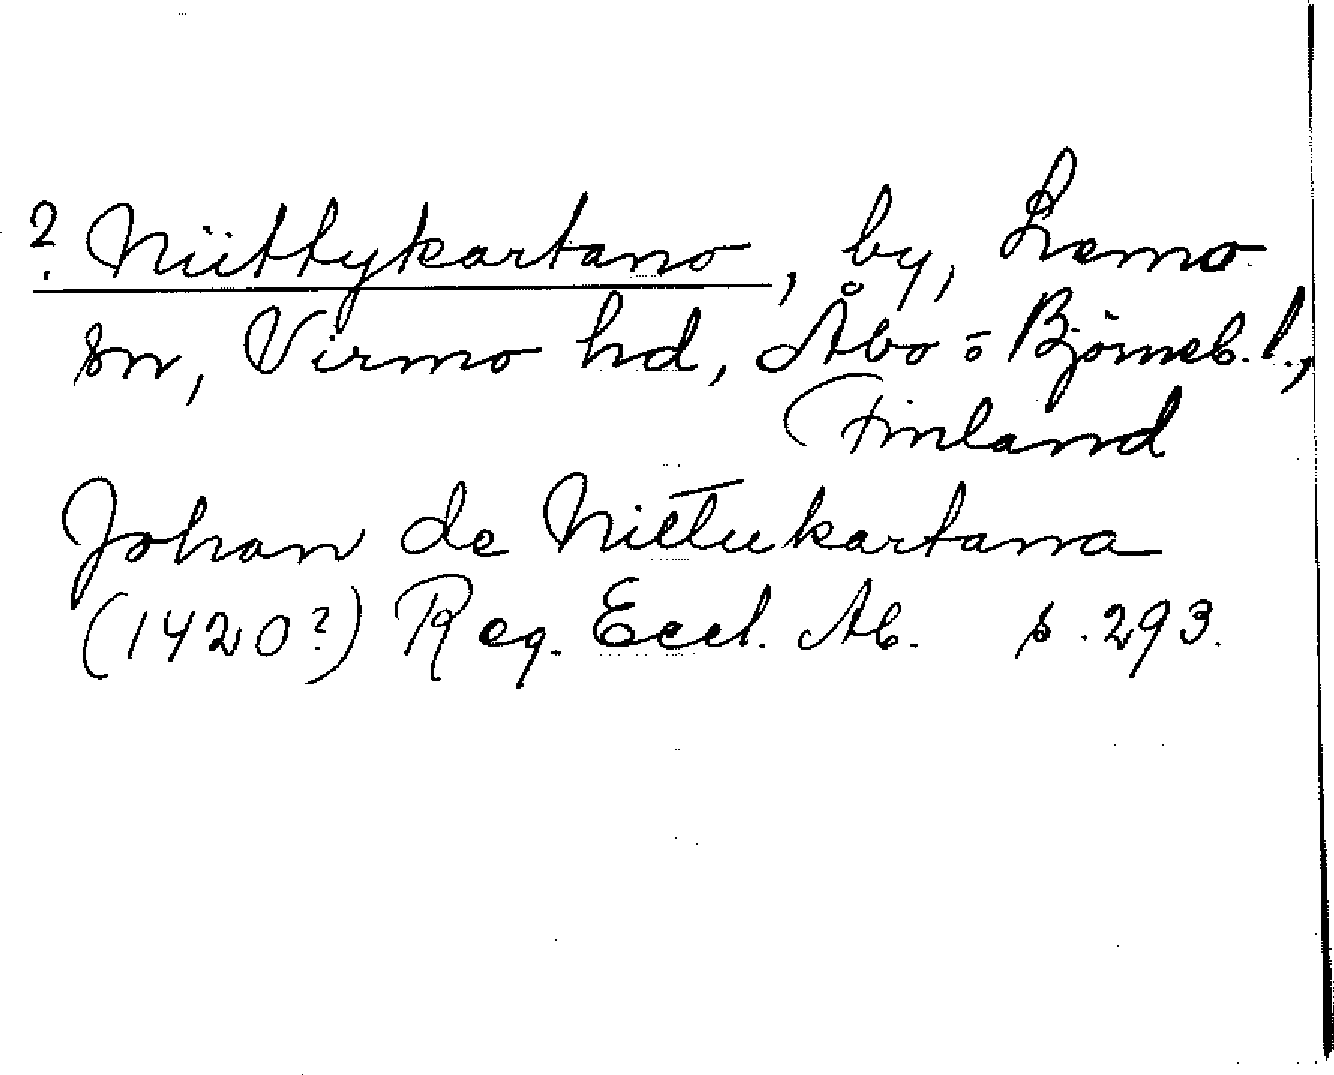 ? Niittykartano, by, Lemo
sn, Virmo hd, Åbo=Björneb. l.,
Finland
Johan de Nittukartana
(1420?) Reg. Eccl. Ab. s. 293.